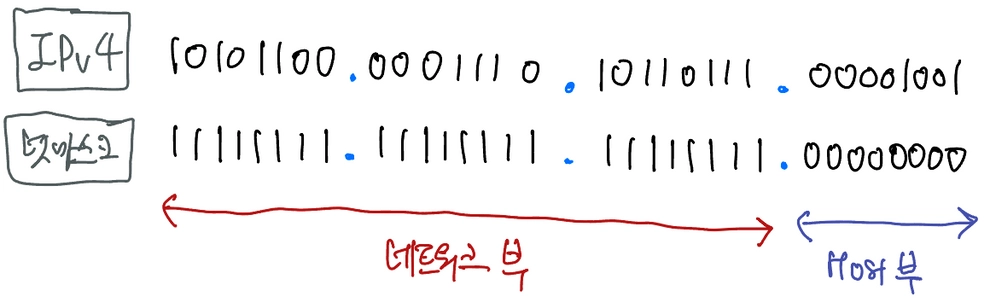 IPv4 10101100.00011110.10110111.00001001
넷마스크 11111111.11111111.11111111.00000000
네트워크 부 Host 부